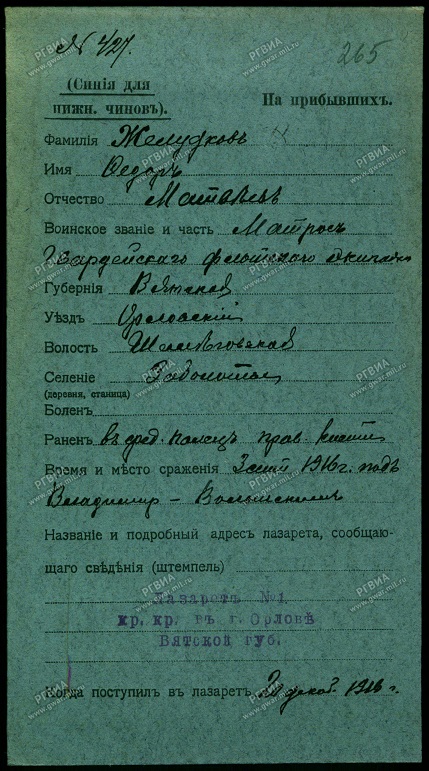 № 427.
265
(Синія для
нижн. чиновъ).
На прибывшихъ.
Фамилія Желудковъ
Имя Ѳедоръ
Отчество Матвѣевъ
Воинское званіе и часть Матросъ
Гвардейскаго флотскаго экипажа
Губернія Вятская
Уѣздъ Орловскій
Волость
Селеніе
(деревня, станица)
Боленъ
Раненъ въ сред. палецъ прав. кисти
Время и мѣсто сраженія 3 сент 1916 г. подъ
Владимир-Волынскимъ
Названіе и подробный адресъ лазарета, сообщаю-
щаго свѣдѣнія (штемпель)
Лазаретъ №1
кр. кр. въ г. Орловѣ
Вятской губ.
Когда поступилъ въ лазаретъ 20 декаб. 1916 г.
РГВИА
www.gwar.mil.ru